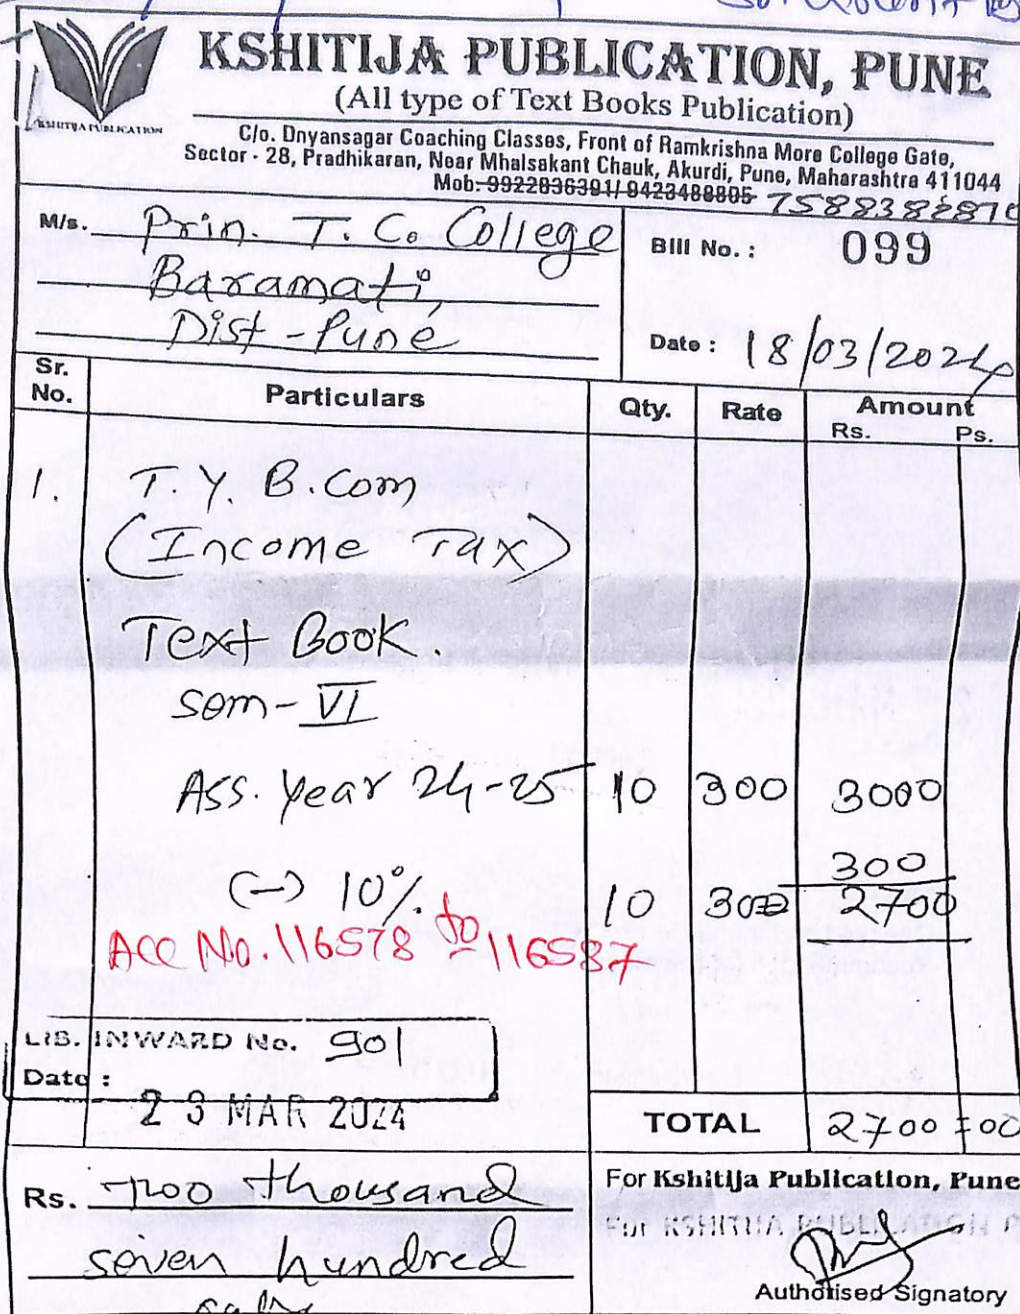 KSHITIJA PUBLICATION, PUNE
(All type of Text Books Publication)
KSHITIJA PUBLICATION
C/o. Dnyansagar Coaching Classes, Front of Ramkrishna More College Gate,
Sector - 28, Pradhikaran, Near Mhalsakant Chauk, Akurdi, Pune, Maharashtra 411044
Mob. 9922836391/ 8423488805 758838287
M/s. Prin. T. C. College
Baramati,
Dist - Pune
Bill No. : 099
Date : 18/03/2024
Sr. No. Particulars Qty. Rate Amount
Rs. Ps.
1. T. Y. B.com
(Income Tax)
Text Book.
Sem - VI
Ass. Year 24-25 10 300 3000
300
(-) 10% 10 300 2700
Acc No. 116578 to 116587
LIB. INWARD No. 901
Date :
23 MAR 2024
TOTAL 2700=00
Rs. Two thousand
seven hundred
only
For Kshitija Publication, Pune
For KSHITIJA PUBLICATION
Authorised Signatory